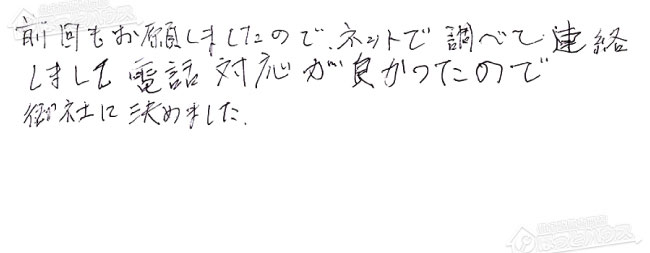 前回もお願しましたので、ネットで調べて連絡
しました電話対応が良かったので
御社に決めました.